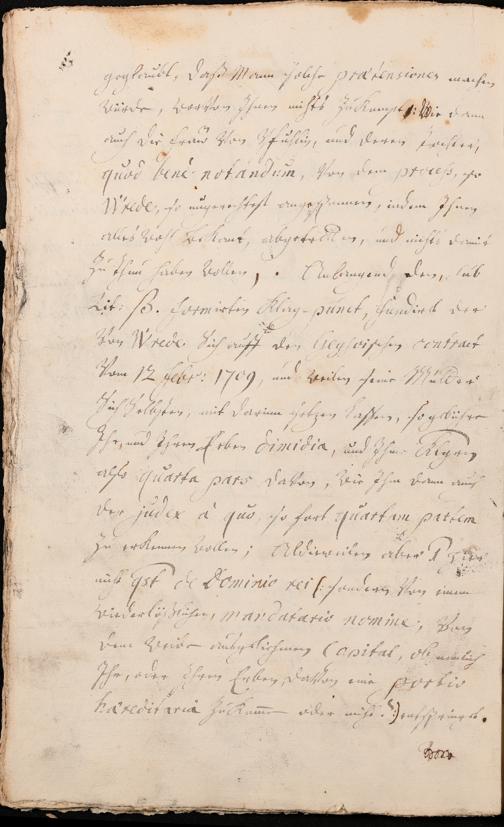 geglaubt, daß Mann solche prætensiones machen
würde, worvon Ihnen nichts zukomme: Wie dann
auch die Frau von und deren Tochter,
quod bene notandum, von dem process, so
Wrede, so ungerechtest angefangen, indem Ihnen
alles wohl bekant, abgestanden, und nichts damit
zu thun haben wollen, . Anlangend den, sub
Lit: B. formirten Klag-punct, fundirt der
von Wrede sich auff den contract
vom 12 febr: 1709, und weilen seine Mutter
sich selbsten, mit darinn setzen lassen, so gebühre
Ihr, und Ihren Erben dimidia, und Ihme Klägern
also quarta pars davon, wie Ihm dann auch
der judex à quo, so fort quartam partem
zu erkennen wollen; Aldieweilen aber hier
nicht qst de Dominio rei (: sondern von einem
wiederlößlichen, mandatario nomine, von
dem Weibe Capital, ob nemlich
Ihr, oder Ihren Erben, davon eine portio
hæreditaria zukomme oder nicht :)